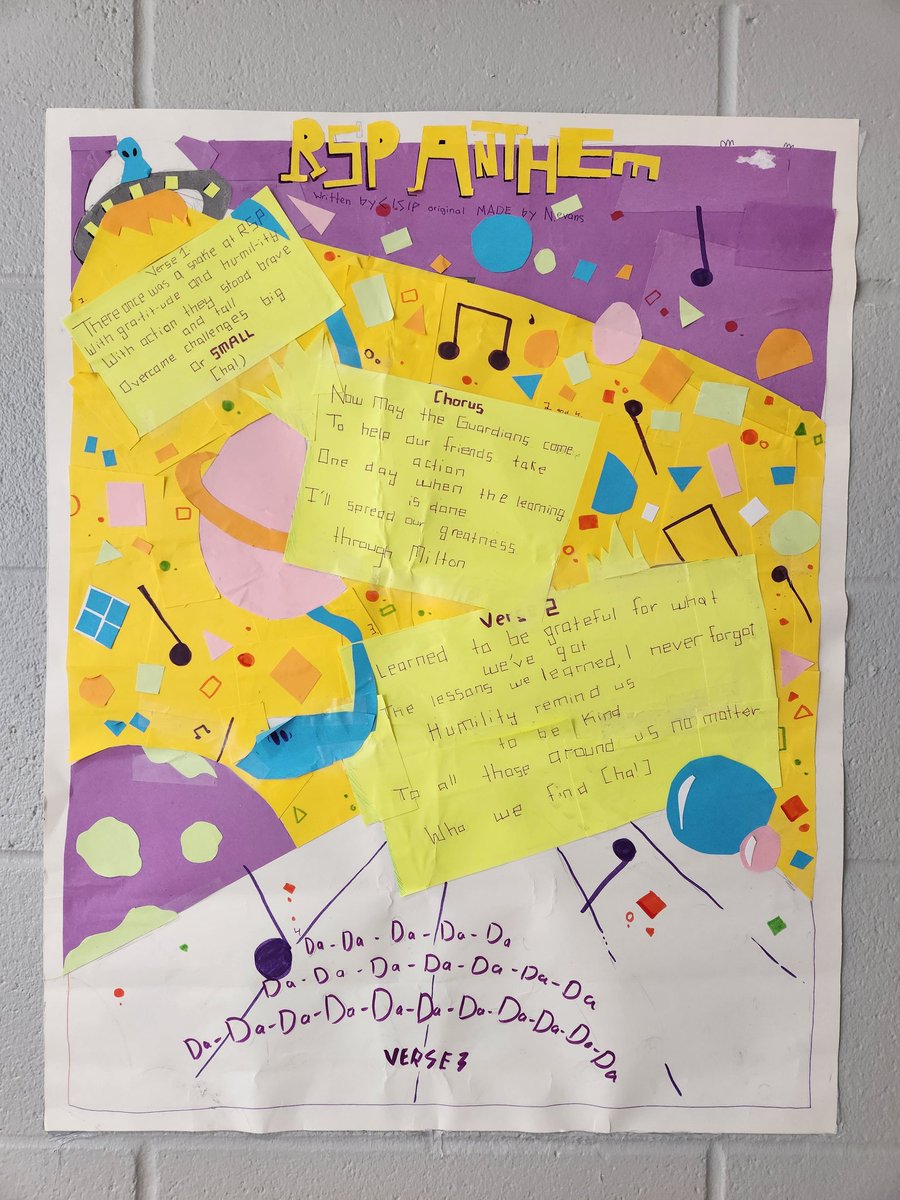 RSP ANTHEM
Written by CLSIP original MADE by N.evans
Verse 1
There once was a snake at RSP
With gratit-ude and humil-ity
With action they stood brave
and tall
Overcame challenges big
Or SMALL
(ha!)
Chorus
Now May the Guardians come,
To help our friends take
action
One day when the learning
is done
I'll spread our greatness
through Milton
Verse 2
Learned to be grateful for what
we've got
The lessons we learned, I never forgot
Humility remind us
to be kind
To all those around us no matter
Who we find [ha!]
Da-Da-Da-Da-Da
Da-Da-Da-Da-Da-Da-Da
Da-Da-Da-Da-Da-Da-Da-Da-Da-Da-Da
VERSE 3